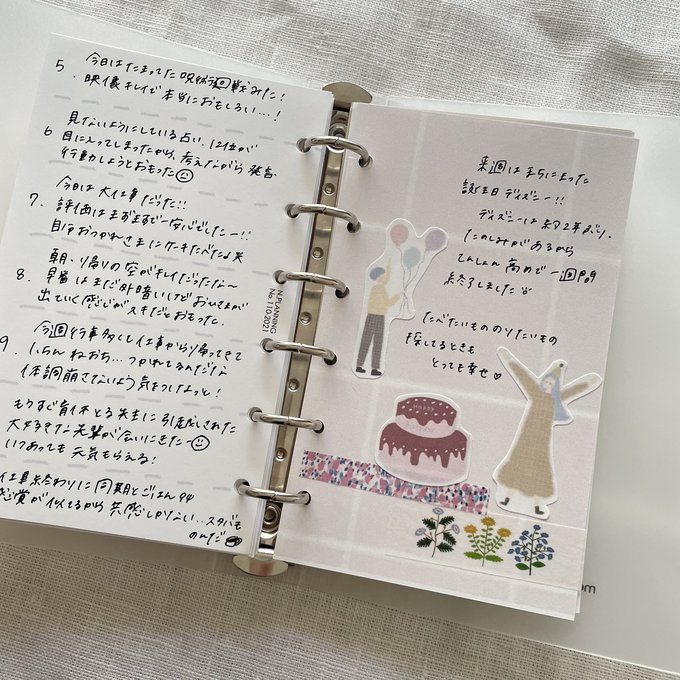 5
今日はたまってた呪術廻戦みた!
映像キレイで本当におもしろい…!
6
見ないようにしている占い、12位が
目に入ってしまったから、考えながら発言、
行動しようとおもった
7.
今日は大仕事だった!!
評価はまずまずで一安心でしたー!!
自分おつかれさまにケーキたべたよ
8.
朝、夕帰りの空がキレイだったな〜
早番はまだ外暗いけどおひさまが
出ていく感じがスキだとおもった.
9
今週行事多くて仕事から帰ってきて
いっちん ねおち…つかれてるんだな
体調崩さないよう気をつけなっと!
もうすぐ育休とる先生に引き
大好きな先輩が会いにきたー
いつあっても元気もらえる!
仕事終わりに同期とごはん
感覚が似てるから共感しかない…スタバも
のんだ
PLANNING
No.110.2021
来週はまちにまった
誕生日ディズニー!!
ディズニーは約2年ぶり.
たのしみがあるから
てんしょん高めで一週間
終了しました
たべたいもののりたいもの
探してるときも
とっても幸せ♡
Happy
om